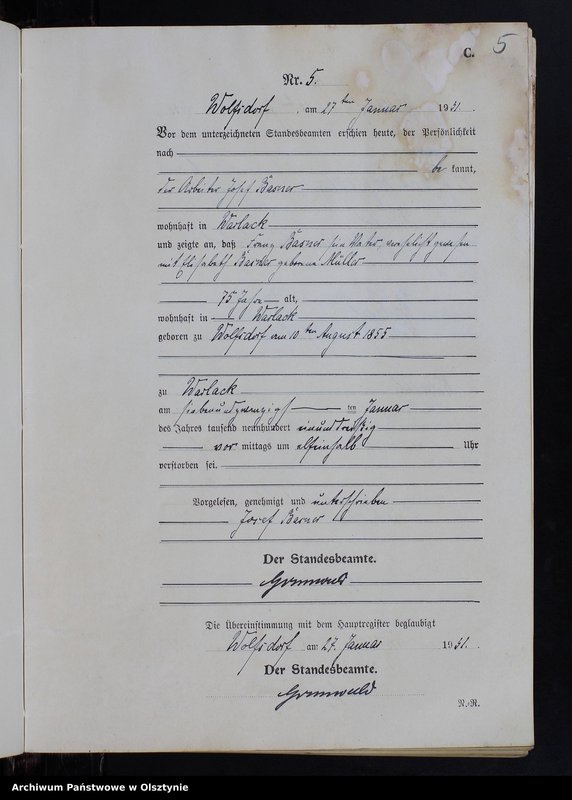 5
C.
Nr. 5.
Wolfsdorf, am 27ten Januar 1931.
Vor dem unterzeichneten Standesbeamten erschien heute, der Persönlichkeit
nach
be kannt,
der Arbeiter Josef Barner
wohnhaft in Warlack
und zeigte an, daß Franz Barner sein Vater, verehelicht gewesen
mit Elisabeth Barner geborene Müller
75 Jahre alt,
wohnhaft in Warlack
geboren zu Wolfsdorf am 10ten August 1855
zu Warlack
am siebenundzwanzigsten Januar
des Jahres tausend neunhundert einunddreißig
vor mittags um elfeinhalb Uhr
verstorben sei.
Vorgelesen, genehmigt und unterschrieben
Josef Barner
Der Standesbeamte.
Grunwald
Die Übereinstimmung mit dem Hauptregister beglaubigt
Wolfsdorf am 27. Januar 1931.
Der Standesbeamte.
Grunwald
N.-R.
Archiwum Państwowe w Olsztynie